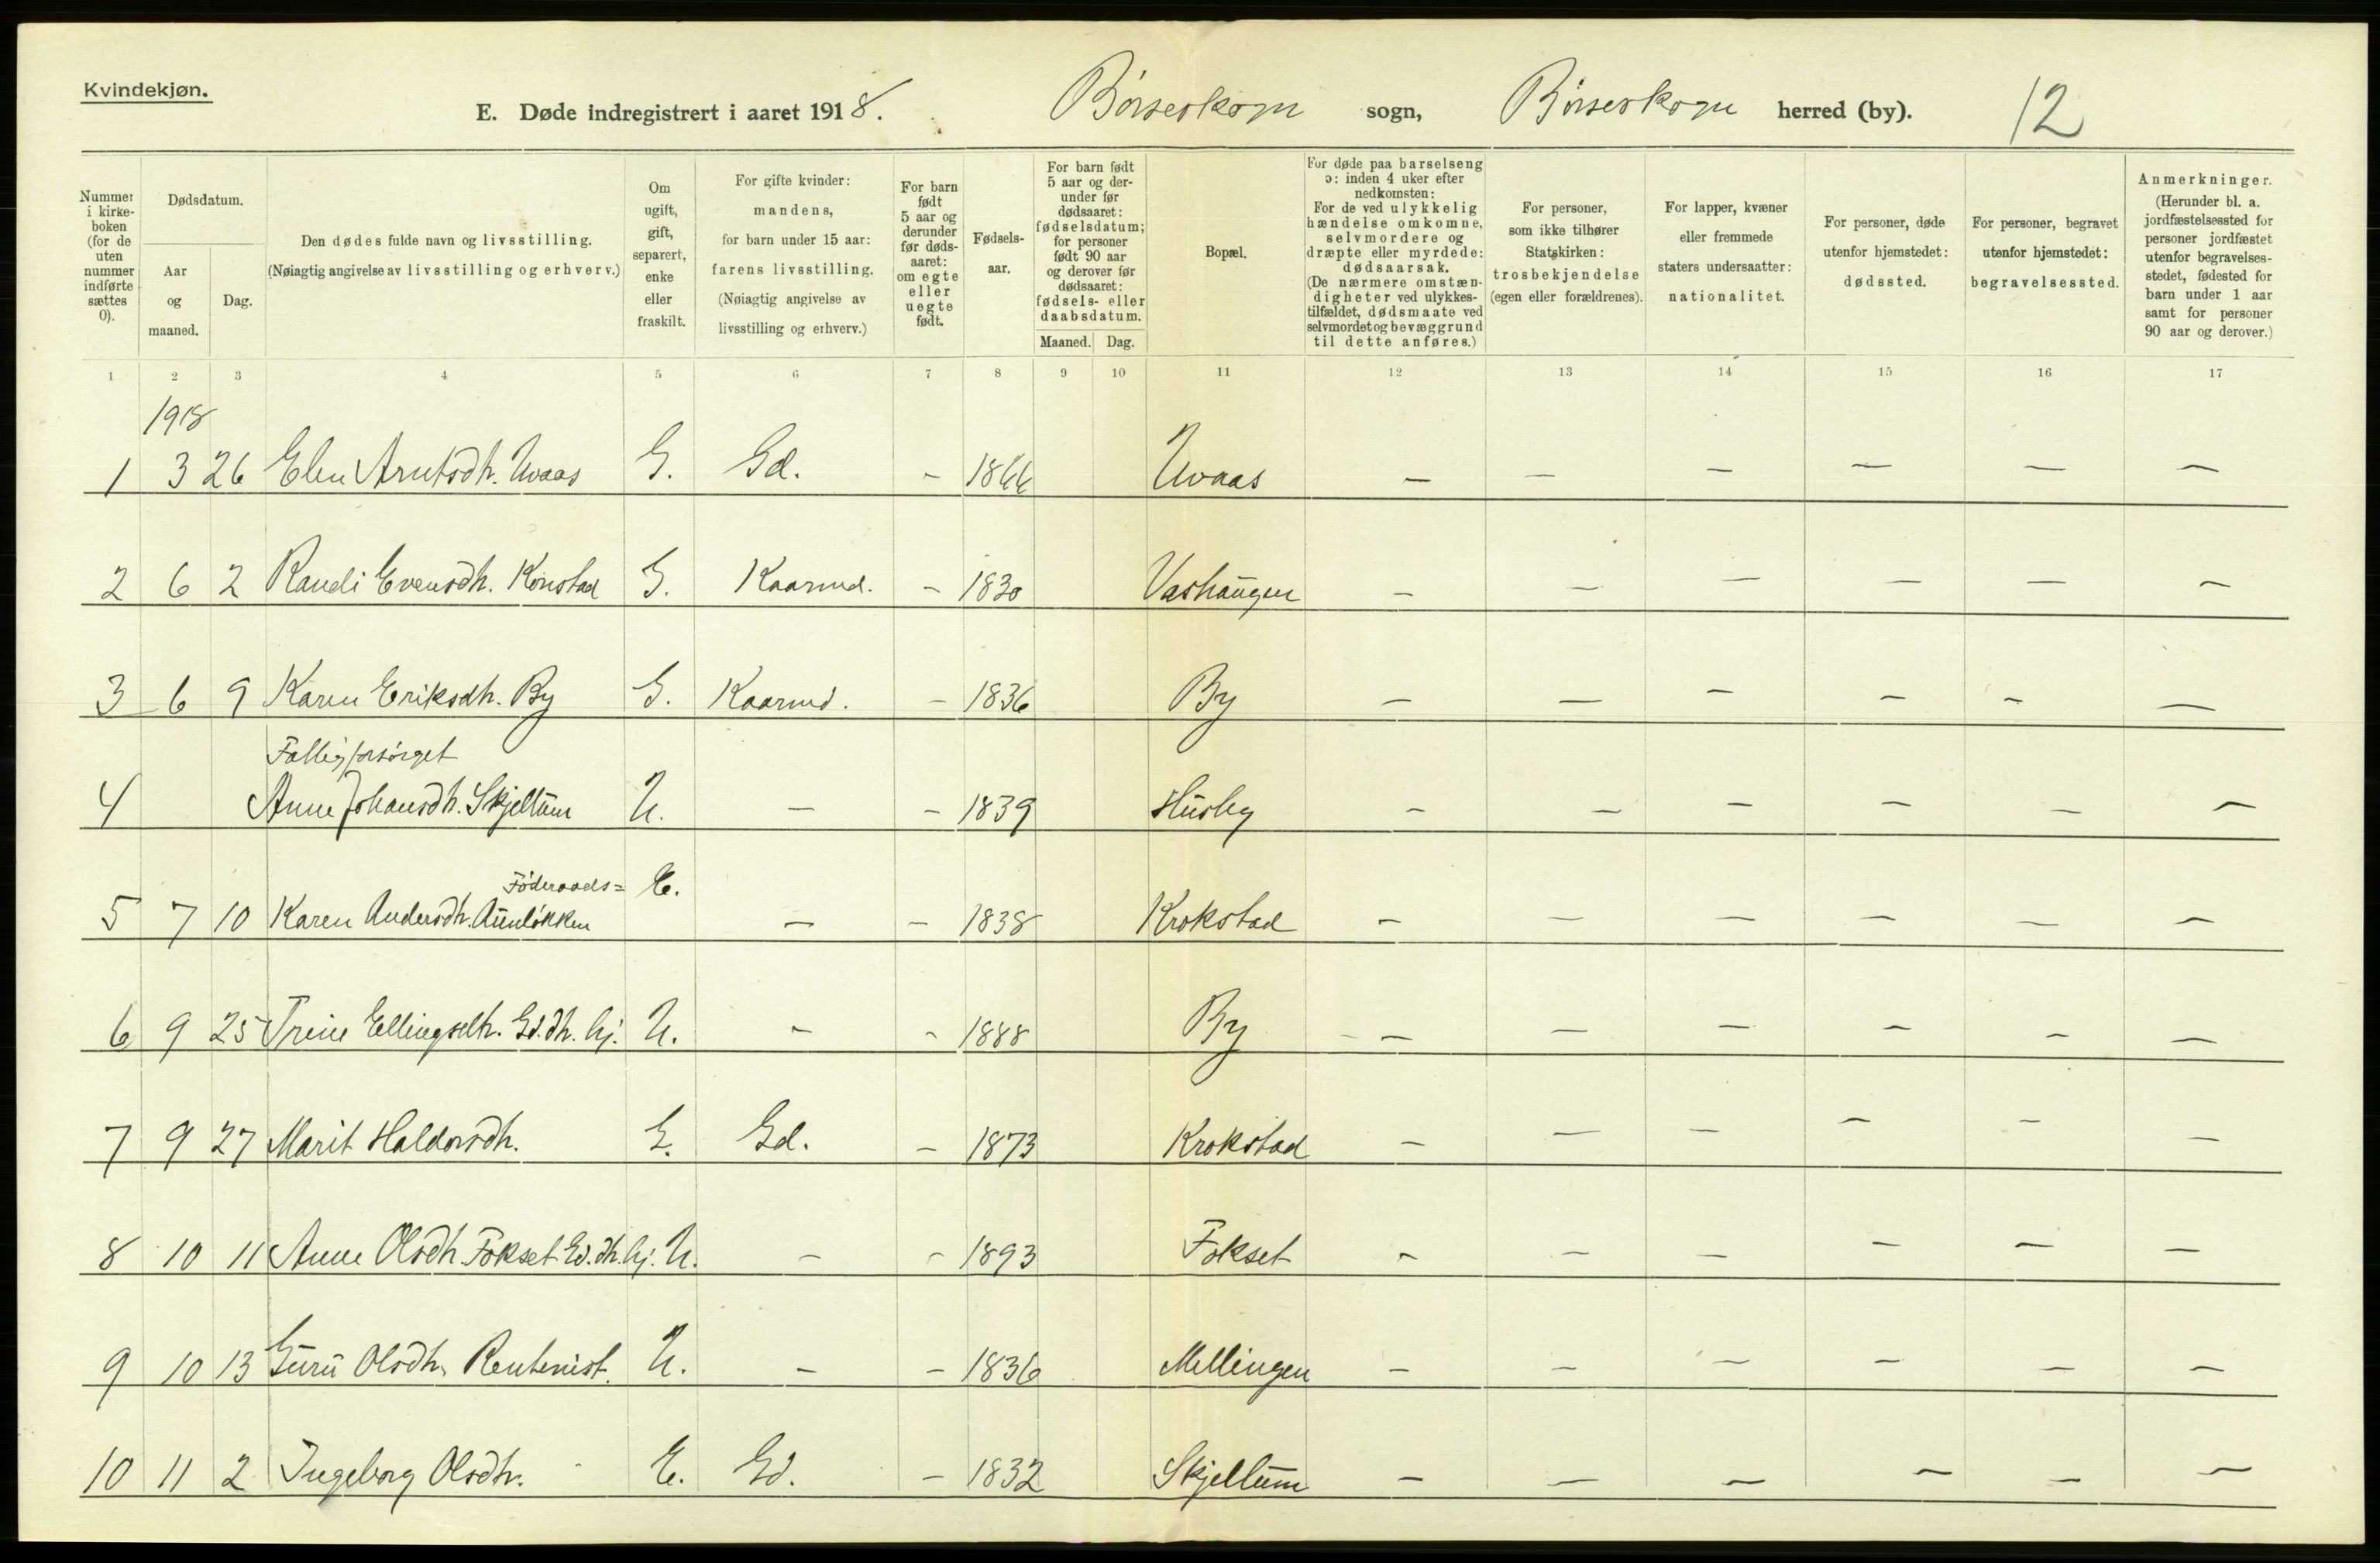 Kvindekjøn.
E. Døde indregistrert i aaret 1918. Børseskogn sogn, Børseskogn herred (by). 12
Nummer i kirkeboken (for de uten nummer indførte sættes 0).
Dødsdatum.
Aar og maaned.
Dag.
Den dødes fulde navn og livsstilling.
(Nøiagtig angivelse av livsstilling og erhverv.)
Om ugift, gift, separert, enke eller fraskilt.
For gifte kvinder: mandens, for barn under 15 aar: farens livsstilling. (Nøiagtig angivelse av livsstilling og erhverv.)
For barn født 5 aar og derunder før dødsaaret: om egte eller uegte født.
Fødselsaar.
For barn født 5 aar og derunder før dødsaaret: fødselsdatum; for personer født 90 aar og derover før dødsaaret: fødsels- eller daabsdatum.
Maaned. Dag.
Bopæl.
For døde paa barselseng ɔ: inden 4 uker efter nedkomsten: For de ved ulykkelig hændelse omkomne, selvmordere og dræpte eller myrdede: dødsaarsak. (De nærmere omstændigheter ved ulykkestilfældet, dødsmaate ved selvmordet og bevæggrund til dette anføres.)
For personer, som ikke tilhører Statskirken: trosbekjendelse (egen eller forældrenes).
For lapper, kvæner eller fremmede staters undersaatter: nationalitet.
For personer, døde utenfor hjemstedet: dødssted.
For personer, begravet utenfor hjemstedet: begravelsessted.
Anmerkninger. (Herunder bl. a. jordfæstelsessted for personer jordfæstet utenfor begravelsesstedet, fødested for barn under 1 aar samt for personer 90 aar og derover.)
1 2 3 4 5 6 7 8 9 10 11 12 13 14 15 16 17
1918
1 3 26 Elen Arntsdh. Uvaas G. Gd. - 1866 Uvaas - - - - - -
2 6 2 Randi Evensdh. Konstad G. Kaarmd. - 1830 Vashaugen - - - - - -
3 6 9 Karen Eriksdh. By G. Kaarmd. - 1836 By - - - - - -
Fattigforsørget
4 Anne Johansdh. Skjellum U. - - 1839 Husby - - - - - -
Föderaads= E.
5 7 10 Karen Andersdh. Aunløkken - - 1838 Krokstad - - - - - -
6 9 25 Trine Ellingsdh. Gd. dh. hj. U. - - 1888 By - - - - - -
7 9 27 Marit Haldorsdh. G. Gd. - 1873 Krokstad - - - - - -
8 10 11 Anne Olsdh. Fokset Gd. dh. hj. U. - - 1893 Fokset - - - - - -
9 10 13 Guru Olsdh. Rentenist. U. - - 1836 Mellingen - - - - - -
10 11 2 Ingeborg Olsdh. E. Gd. - 1832 Skjellum - - - - - -